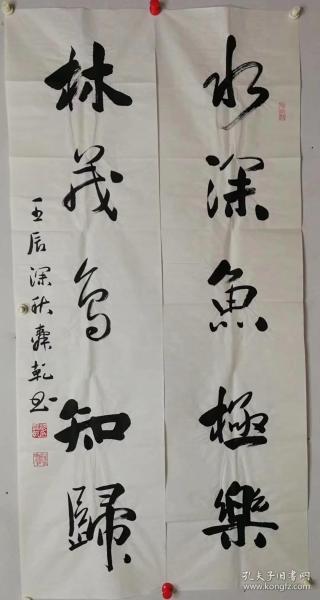 水深魚極樂
林茂鳥知歸
壬辰深秋 乾书
孔夫子旧书网